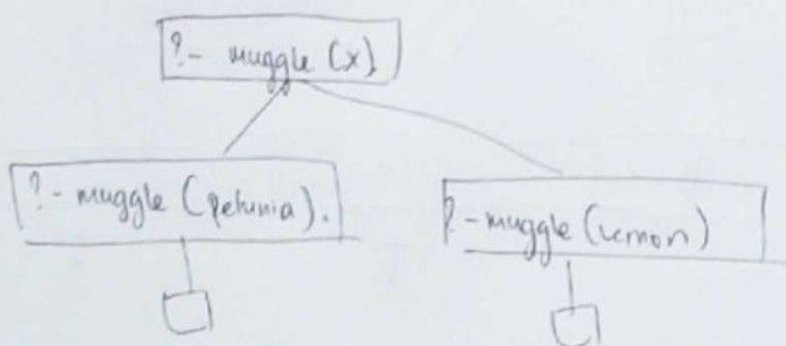 ?- muggle (x)
?- muggle (petunia).
?- muggle (vernon)